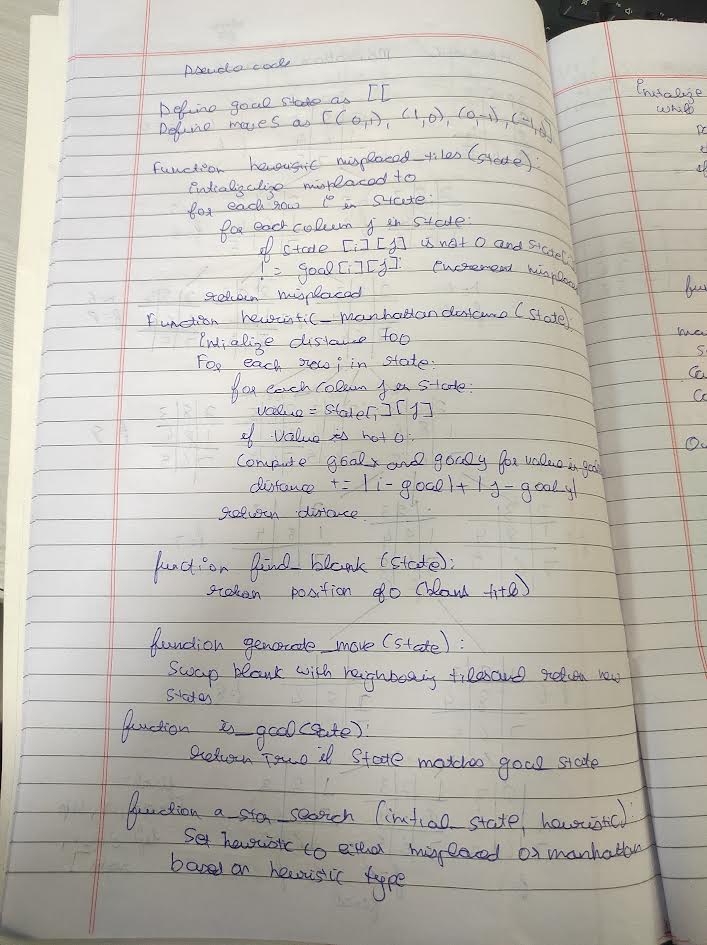 Pseudo code
Define goal state as [[
Define moves as [(0,1), (1,0), (0,-1), (-1,0)]
Function heuristic misplaced_tiles (state):
Initialize misplaced to
for each row i in state:
for each column j in state:
if state [i][j] is not 0 and state[
! = goal[i][j]: increment misplac
return misplaced
Function heuristic_manhattan distance (state):
Initialize distance to 0
For each row i in state:
for each column j in state:
value = state[i][j]
if value is not 0:
Compute goalx and goaly for value in goal
distance += |i - goal| + |j - goaly|
return distance
function find_blank (state):
return position of 0 (blank title)
function generate_move (state):
Swap blank with neighboring tiles and return new
states
function is_goal (state):
return True if state matches goal state
function a_star_search (initial_state, heuristic):
Set heuristic to either misplaced or manhattan
based on heuristic type
Initialize
while